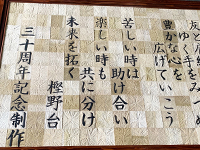 ゆく手をみつめ
豊かな心を
広げていこう
苦しい時は
助け合い
楽しい時も
共に分け
未来を拓く
樫野台
三十周年記念制作